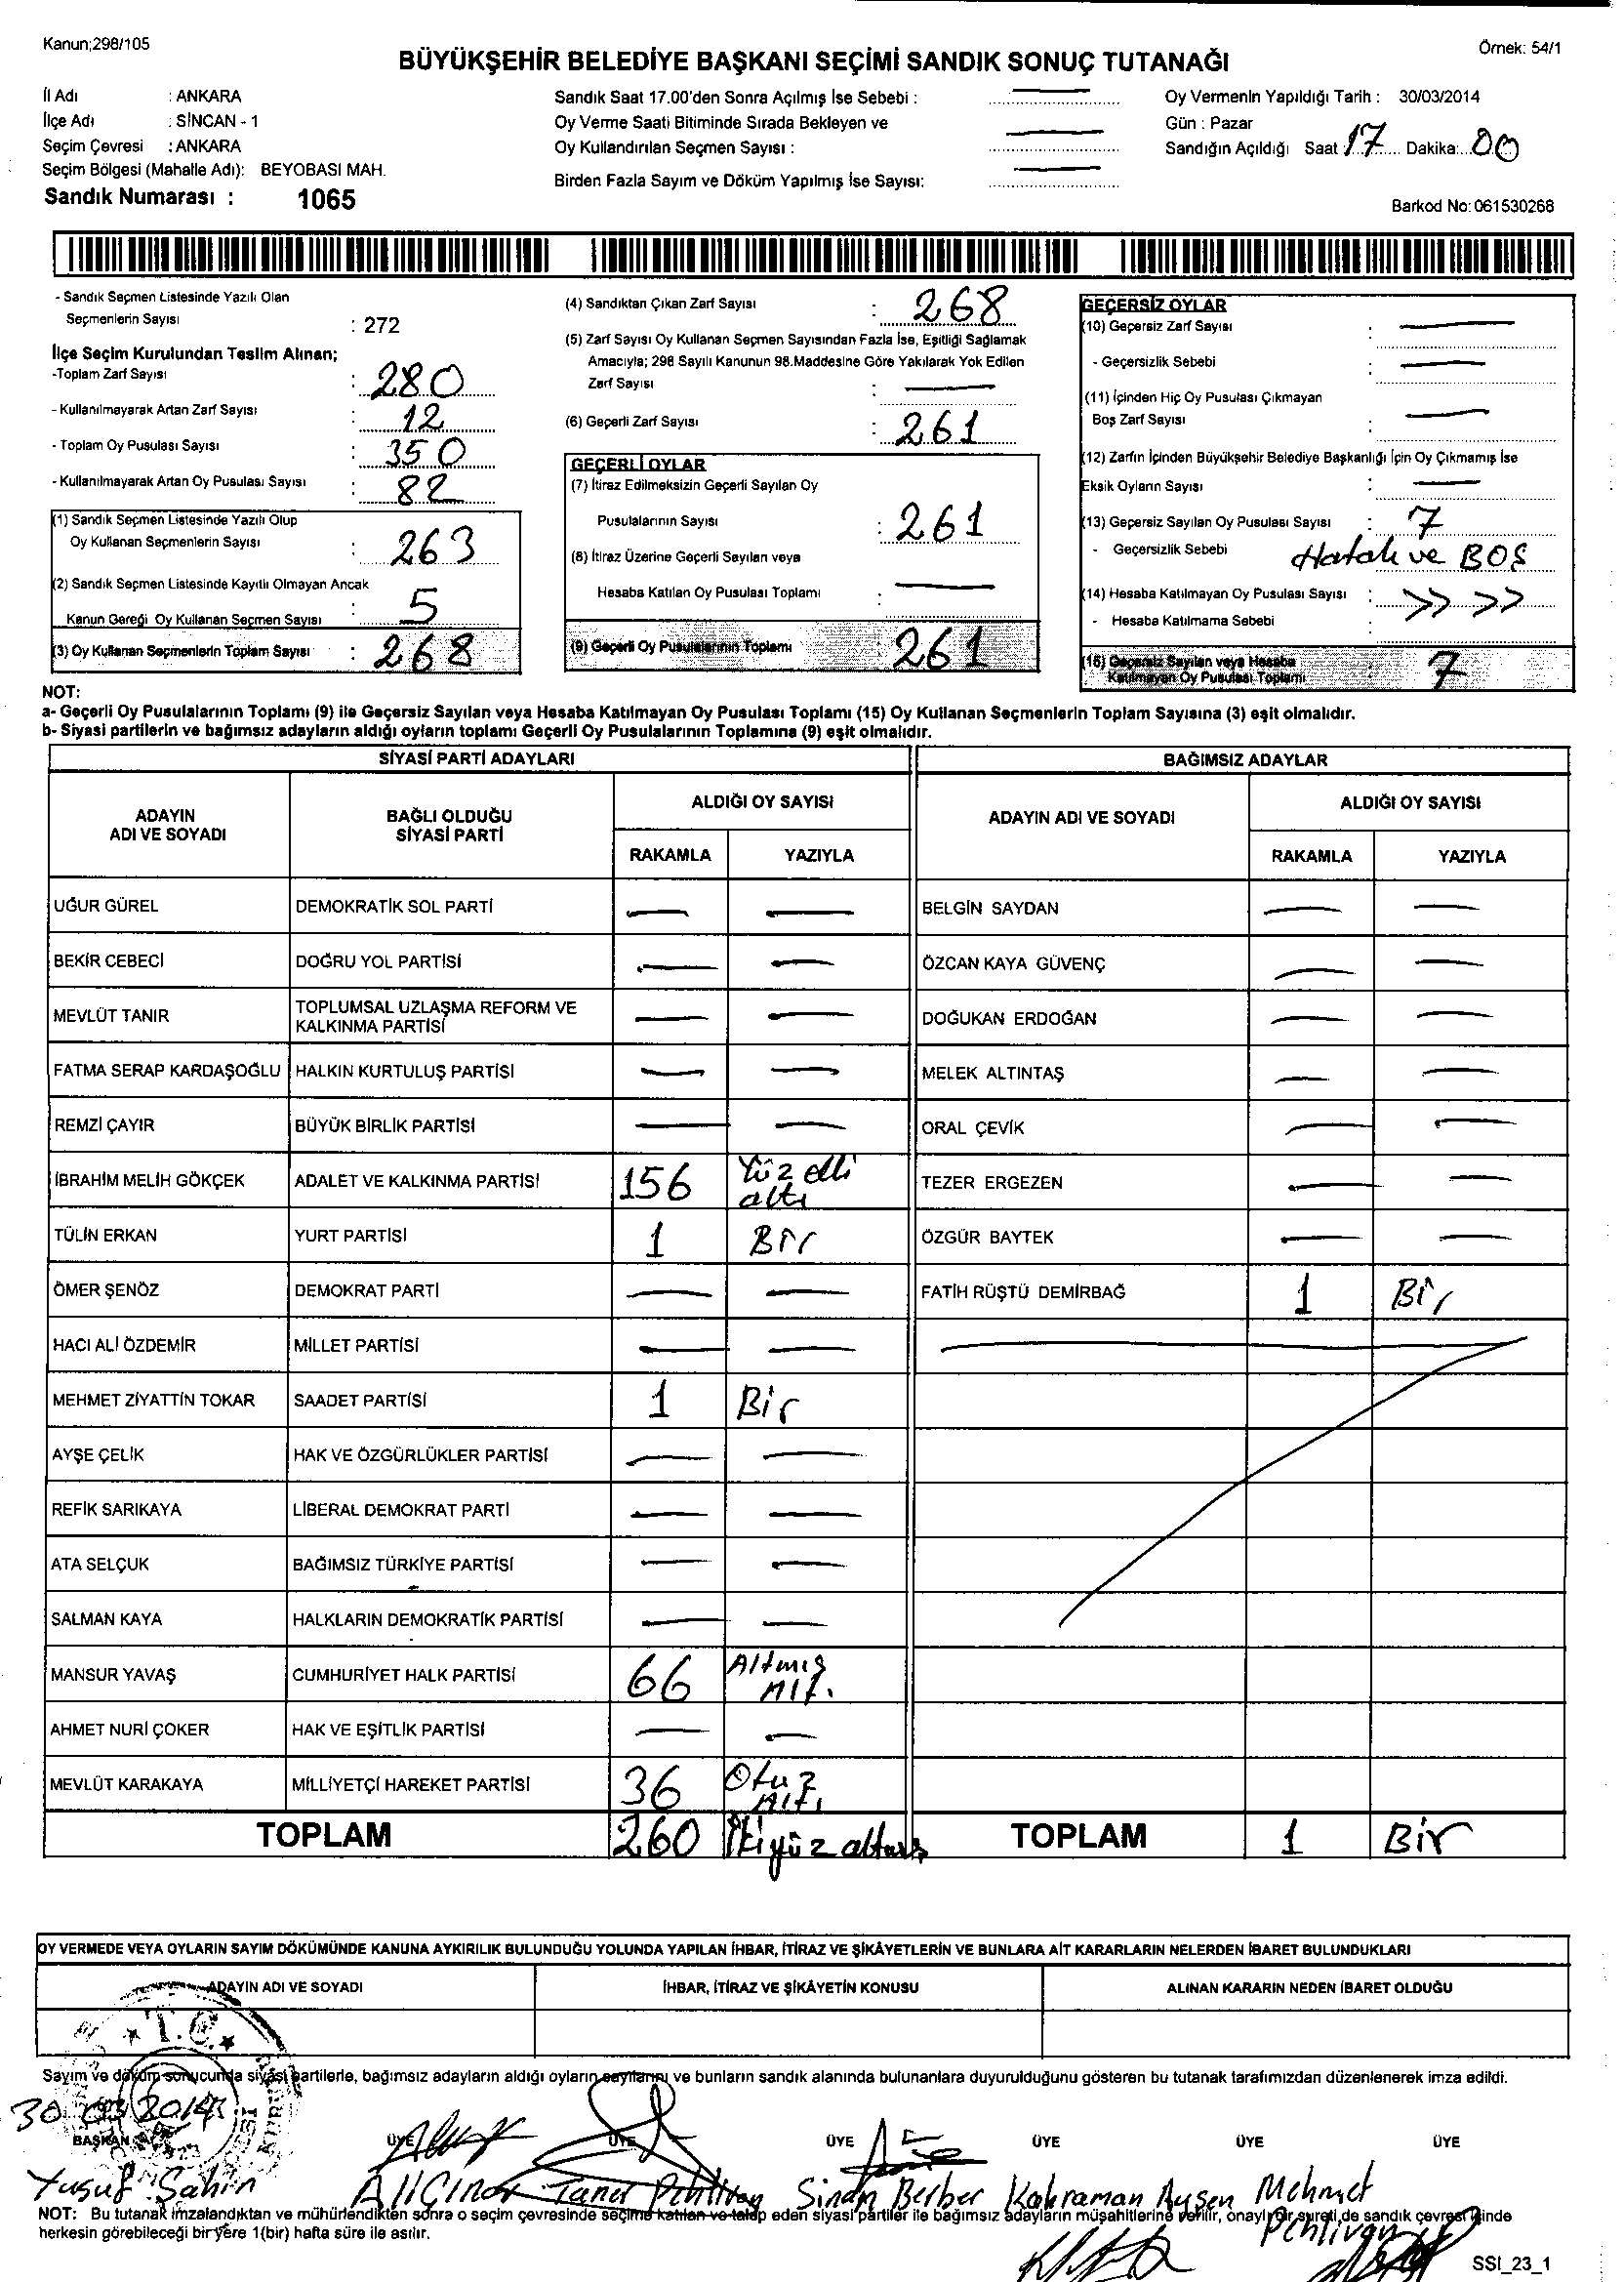 Kanun;298/105
Örnek: 54/1
BÜYÜKŞEHİR BELEDİYE BAŞKANI SEÇİMİ SANDIK SONUÇ TUTANAĞI
İl Adı : ANKARA
İlçe Adı : SİNCAN - 1
Seçim Çevresi : ANKARA
Seçim Bölgesi (Mahalle Adı): BEYOBASI MAH.
Sandık Numarası : 1065
Sandık Saat 17.00'den Sonra Açılmış İse Sebebi : —
Oy Verme Saati Bitiminde Sırada Bekleyen ve
Oy Kullandırılan Seçmen Sayısı : —
Birden Fazla Sayım ve Döküm Yapılmış İse Sayısı: —
Oy Vermenin Yapıldığı Tarih : 30/03/2014
Gün : Pazar
Sandığın Açıldığı Saat 17 Dakika: 00
Barkod No: 061530268
- Sandık Seçmen Listesinde Yazılı Olan
Seçmenlerin Sayısı : 272
İlçe Seçim Kurulundan Teslim Alınan;
-Toplam Zarf Sayısı : 280
- Kullanılmayarak Artan Zarf Sayısı : 12
- Toplam Oy Pusulası Sayısı : 350
- Kullanılmayarak Artan Oy Pusulası Sayısı : 82
(1) Sandık Seçmen Listesinde Yazılı Olup
Oy Kullanan Seçmenlerin Sayısı : 263
(2) Sandık Seçmen Listesinde Kayıtlı Olmayan Ancak
Kanun Gereği Oy Kullanan Seçmen Sayısı : 5
(3) Oy Kullanan Seçmenlerin Toplam Sayısı : 268
(4) Sandıktan Çıkan Zarf Sayısı : 268
(5) Zarf Sayısı Oy Kullanan Seçmen Sayısından Fazla İse, Eşitliği Sağlamak
Amacıyla; 298 Sayılı Kanunun 98.Maddesine Göre Yakılarak Yok Edilen
Zarf Sayısı : —
(6) Geçerli Zarf Sayısı : 261
GEÇERLİ OYLAR
(7) İtiraz Edilmeksizin Geçerli Sayılan Oy
Pusulalarının Sayısı : 261
(8) İtiraz Üzerine Geçerli Sayılan veya
Hesaba Katılan Oy Pusulası Toplamı : —
(9) Geçerli Oy Pusulalarının Toplamı 261
GEÇERSİZ OYLAR
(10) Geçersiz Zarf Sayısı : —
- Geçersizlik Sebebi : —
(11) İçinden Hiç Oy Pusulası Çıkmayan
Boş Zarf Sayısı : —
(12) Zarfın İçinden Büyükşehir Belediye Başkanlığı İçin Oy Çıkmamış İse
Eksik Oyların Sayısı : —
(13) Geçersiz Sayılan Oy Pusulası Sayısı : 7
- Geçersizlik Sebebi Hatalı ve BOŞ
(14) Hesaba Katılmayan Oy Pusulası Sayısı : >> >>
- Hesaba Katılmama Sebebi :
(15) Geçersiz Sayılan veya Hesaba
Katılmayan Oy Pusulası Toplamı 7
NOT:
a- Geçerli Oy Pusulalarının Toplamı (9) ile Geçersiz Sayılan veya Hesaba Katılmayan Oy Pusulası Toplamı (15) Oy Kullanan Seçmenlerin Toplam Sayısına (3) eşit olmalıdır.
b- Siyasi partilerin ve bağımsız adayların aldığı oyların toplamı Geçerli Oy Pusulalarının Toplamına (9) eşit olmalıdır.
SİYASİ PARTİ ADAYLARI
ADAYIN ADI VE SOYADI BAĞLI OLDUĞU SİYASİ PARTİ ALDIĞI OY SAYISI
RAKAMLA YAZIYLA
UĞUR GÜREL DEMOKRATİK SOL PARTİ — —
BEKİR CEBECİ DOĞRU YOL PARTİSİ — —
MEVLÜT TANIR TOPLUMSAL UZLAŞMA REFORM VE KALKINMA PARTİSİ — —
FATMA SERAP KARDAŞOĞLU HALKIN KURTULUŞ PARTİSİ — —
REMZİ ÇAYIR BÜYÜK BİRLİK PARTİSİ — —
İBRAHİM MELİH GÖKÇEK ADALET VE KALKINMA PARTİSİ 156 Yüz elli altı
TÜLİN ERKAN YURT PARTİSİ 1 Bir
ÖMER ŞENÖZ DEMOKRAT PARTİ — —
HACI ALİ ÖZDEMİR MİLLET PARTİSİ — —
MEHMET ZİYATTİN TOKAR SAADET PARTİSİ 1 Bir
AYŞE ÇELİK HAK VE ÖZGÜRLÜKLER PARTİSİ — —
REFİK SARIKAYA LİBERAL DEMOKRAT PARTİ — —
ATA SELÇUK BAĞIMSIZ TÜRKİYE PARTİSİ — —
SALMAN KAYA HALKLARIN DEMOKRATİK PARTİSİ — —
MANSUR YAVAŞ CUMHURİYET HALK PARTİSİ 66 Altmış Altı
AHMET NURİ ÇOKER HAK VE EŞİTLİK PARTİSİ — —
MEVLÜT KARAKAYA MİLLİYETÇİ HAREKET PARTİSİ 36 Otuz Altı
TOPLAM 260 İkiyüz altmış
BAĞIMSIZ ADAYLAR
ADAYIN ADI VE SOYADI ALDIĞI OY SAYISI
RAKAMLA YAZIYLA
BELGİN SAYDAN — —
ÖZCAN KAYA GÜVENÇ — —
DOĞUKAN ERDOĞAN — —
MELEK ALTINTAŞ — —
ORAL ÇEVİK — —
TEZER ERGEZEN — —
ÖZGÜR BAYTEK — —
FATİH RÜŞTÜ DEMİRBAĞ 1 Bir
TOPLAM 1 Bir
OY VERMEDE VEYA OYLARIN SAYIM DÖKÜMÜNDE KANUNA AYKIRILIK BULUNDUĞU YOLUNDA YAPILAN İHBAR, İTİRAZ VE ŞİKÂYETLERİN VE BUNLARA AİT KARARLARIN NELERDEN İBARET BULUNDUKLARI
ADAYIN ADI VE SOYADI İHBAR, İTİRAZ VE ŞİKÂYETİN KONUSU ALINAN KARARIN NEDEN İBARET OLDUĞU
T.C.
Sayım ve döküm sonucunda siyasi partilerle, bağımsız adayların aldığı oyların sayılarını ve bunların sandık alanında bulunanlara duyurulduğunu gösteren bu tutanak tarafımızdan düzenlenerek imza edildi.
30.03.2014
BAŞKAN ÜYE ÜYE ÜYE ÜYE ÜYE ÜYE
Yusuf Şahin Ali Çınar Taner Pehlivan Sinan Berber Kahraman Ayşen Mehmet Pehlivan
NOT: Bu tutanak imzalandıktan ve mühürlendikten sonra o seçim çevresinde seçime katılan ve talep eden siyasi partiler ile bağımsız adayların müşahitlerine verilir, onaylı bir sureti de sandık çevresinde
herkesin görebileceği bir yere 1(bir) hafta süre ile asılır.
SSI_23_1